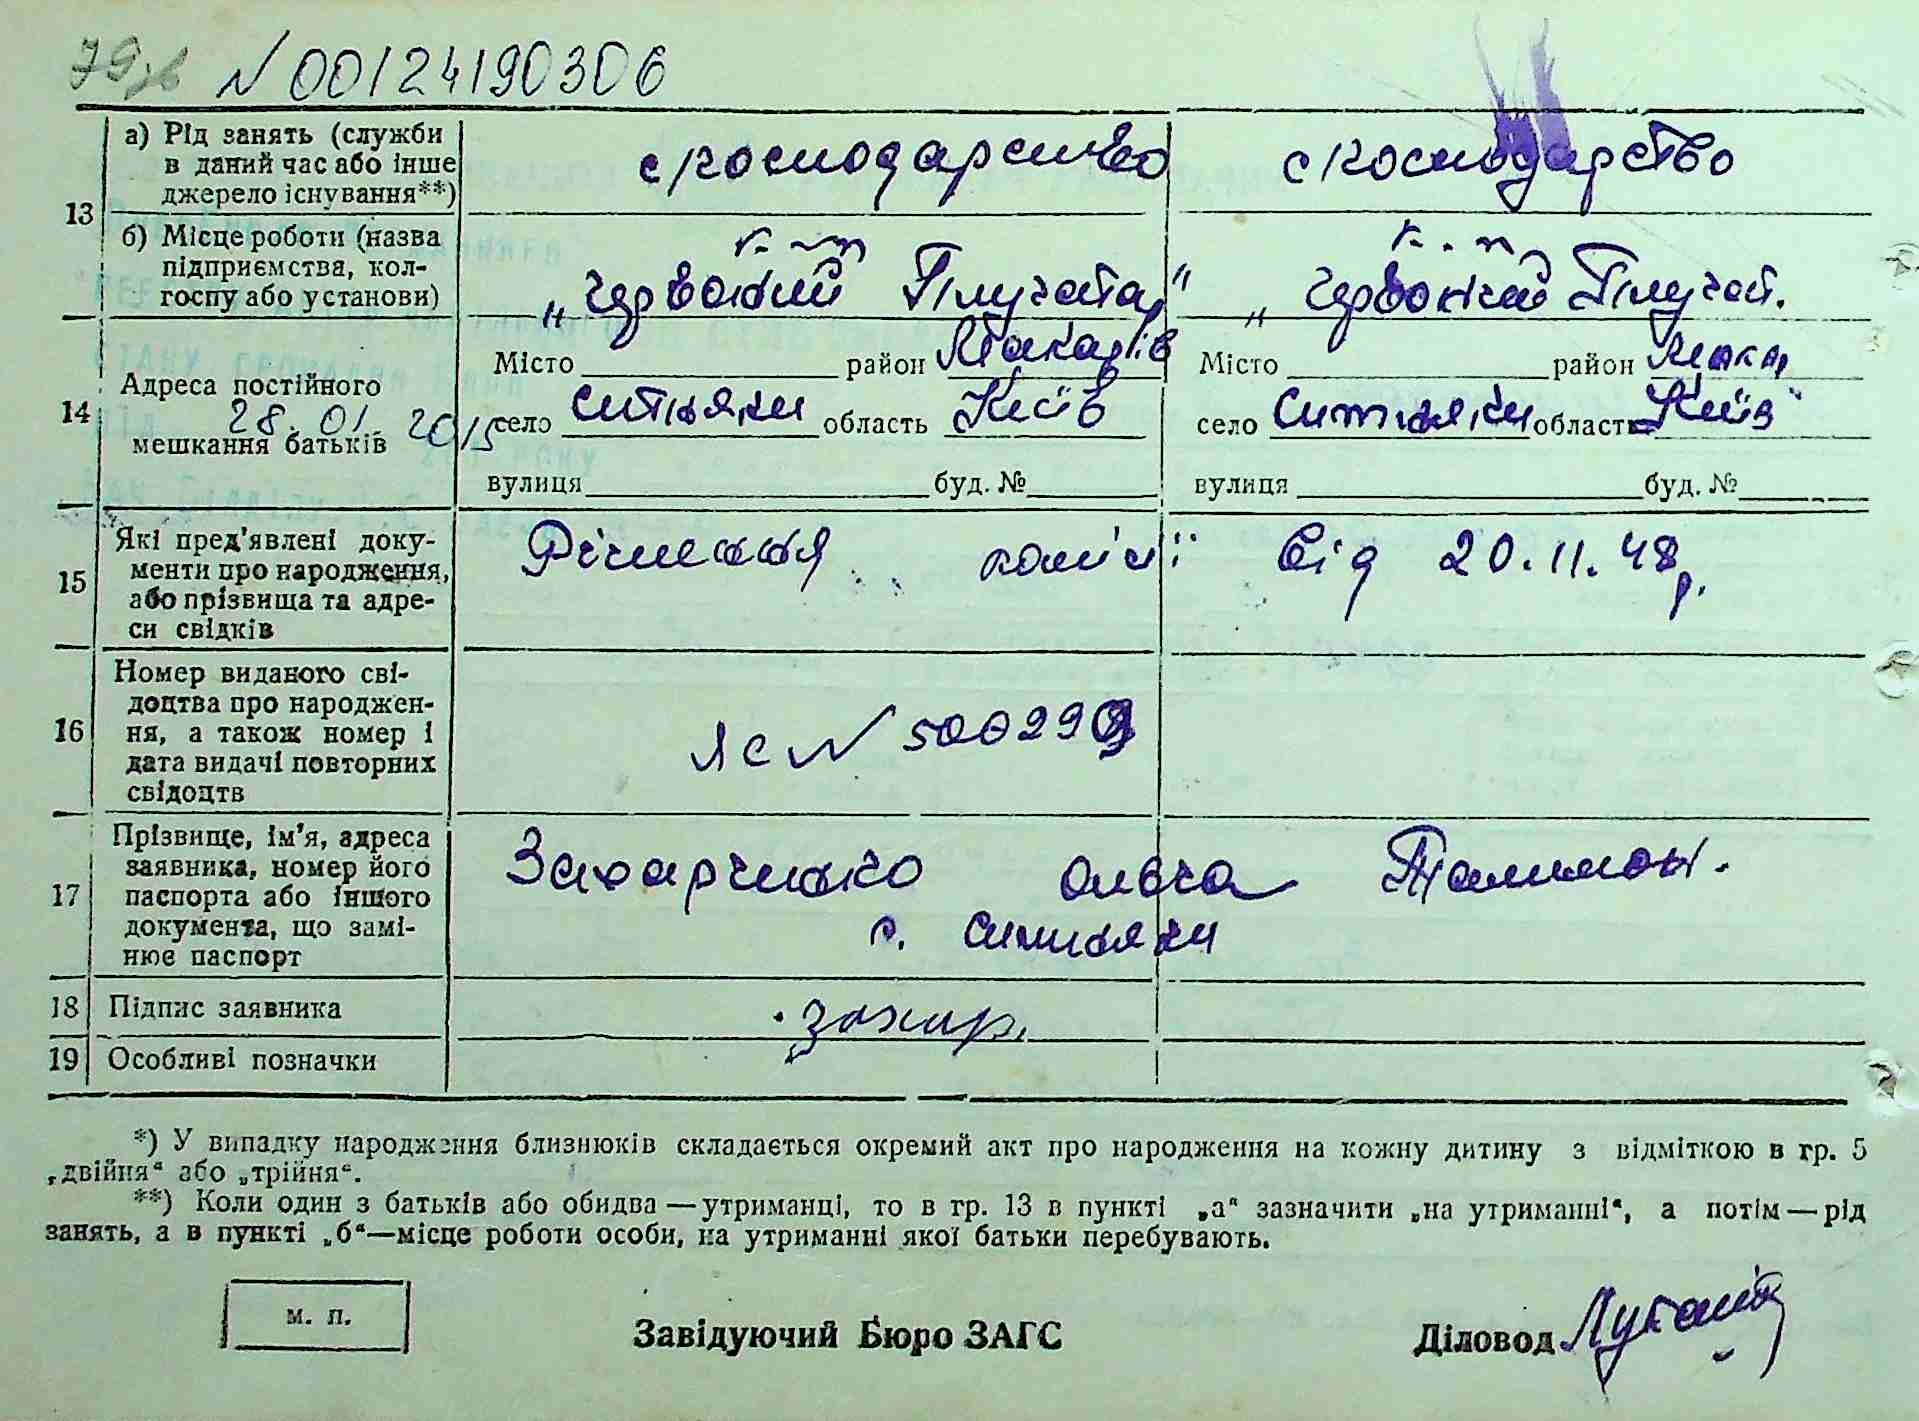 79 зв N 00124190306
13 а) Рід занять (служби в даний час або інше джерело існування**) с/господарство с/господарство
б) Місце роботи (назва підприємства, колгоспу або установи) к-п „Червоний Плугатар“ к-п „Червоний Плугат.
14 Адреса постійного мешкання батьків 28.01.2015
Місто район Макарів Місто район Макар
село Ситняки область Київ село Ситняки область Київ
вулиця буд. № вулиця буд. №
15 Які пред'явлені документи про народження, або прізвища та адреси свідків Рішення комісії від 20.11.48р.
16 Номер виданого свідоцтва про народження, а також номер і дата видачі повторних свідоцтв ЯС N
17 Прізвище, ім'я, адреса заявника, номер його паспорта або іншого документа, що замінює паспорт Захарченко Ольга
с. Ситняки
18 Підпис заявника Захар.
19 Особливі позначки
*) У випадку народження близнюків складається окремий акт про народження на кожну дитину з відміткою в гр. 5
„двійня“ або „трійня“.
**) Коли один з батьків або обидва — утриманці, то в гр. 13 в пункті „а“ зазначити „на утриманні“, а потім — рід
занять, а в пункті „б“—місце роботи особи, на утриманні якої батьки перебувають.
м. п.
Завідуючий Бюро ЗАГС Діловод